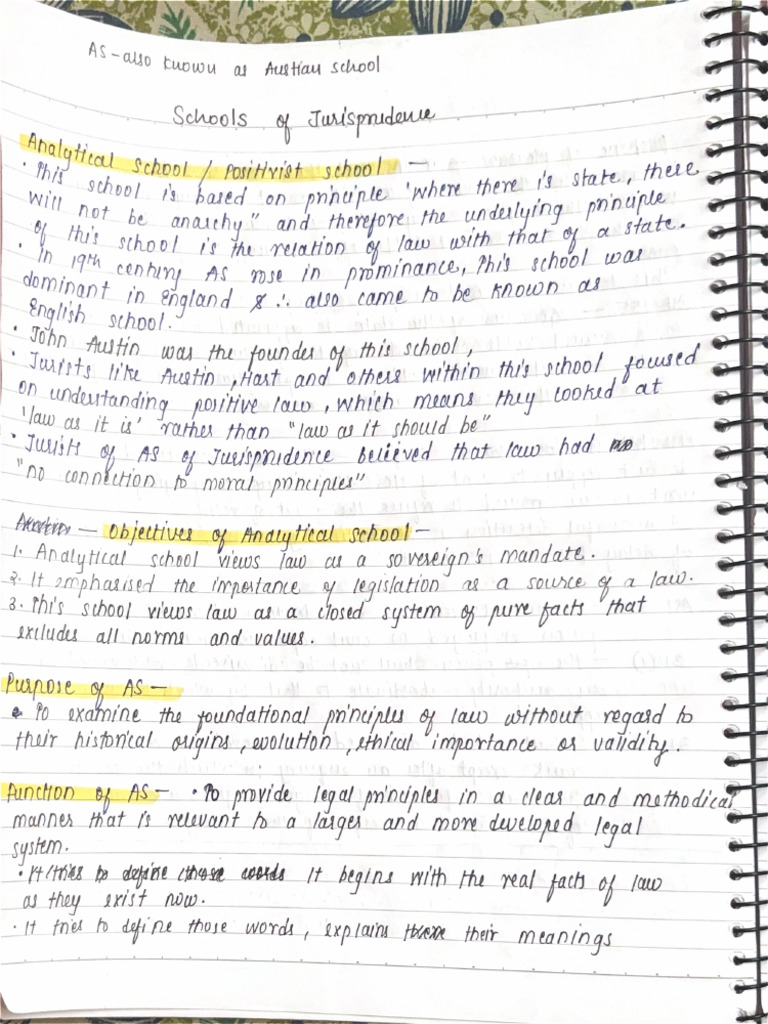 AS - also known as Austian school
Schools of Jurisprudence
Analytical School / Positivist school -
• This school is based on principle 'where there is state, there
will not be anarchy" and therefore the underlying principle
of this school is the relation of law with that of a state.
• In 19th century AS rose in prominance, This school was
dominant in England & ∴ also came to be known as
English school.
• John Austin was the founder of this school,
• Jurists like Austin, Hart and others within this school focused
on understanding positive law, which means they looked at
'law as it is' rather than "law as it should be"
• Jurists of AS of Jurisprudence believed that law had no
"no connection to moral principles"
— Objectives of Analytical school -
1. Analytical school views law as a sovereign's mandate.
2. It emphasised the importance of legislation as a source of a law.
3. This school views law as a closed system of pure facts that
excludes all norms and values.
Purpose of AS —
• To examine the foundational principles of law without regard to
their historical origins, evolution, ethical importance or validity.
Function of AS - • To provide legal principles in a clear and methodical
manner that is relevant to a larger and more developed legal
system.
• It tries to define those words It begins with the real facts of law
as they exist now.
• It tries to define those words, explains their meanings